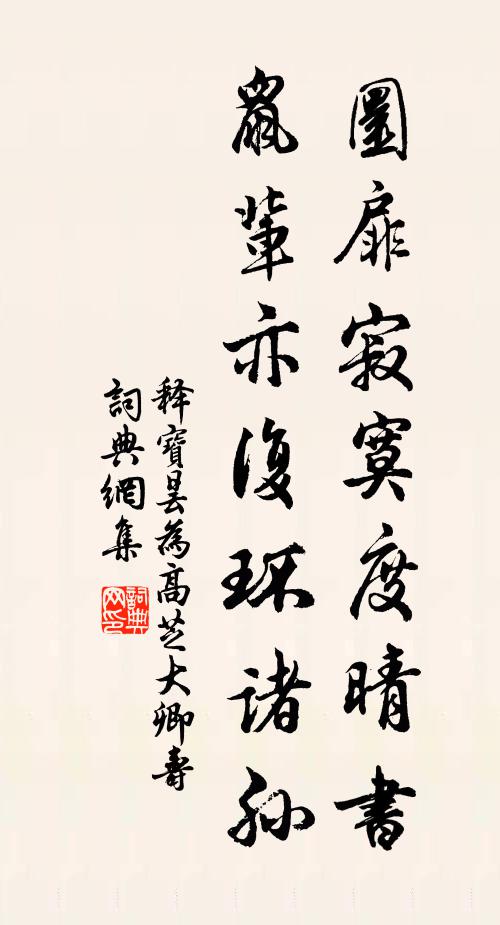 圜扉寂寞度晴書
鼠輩亦復环諸孫
释寶曇為高芝大卿壽
詞典網集
詞典网印